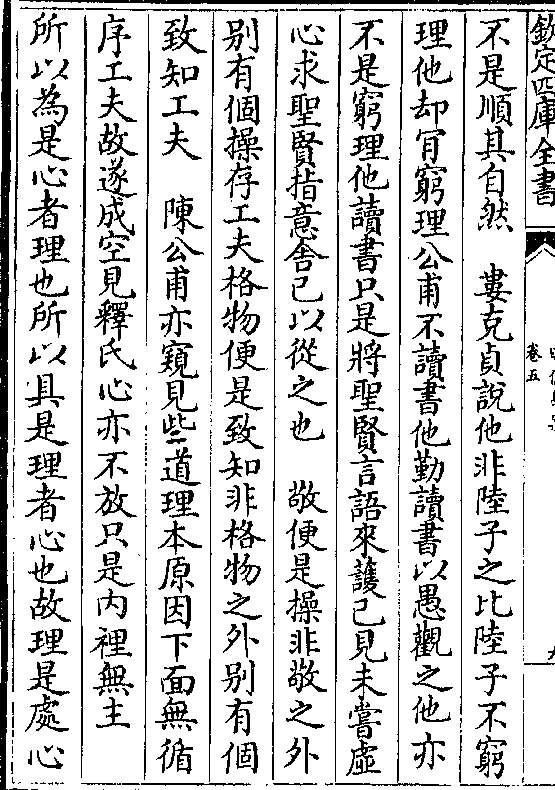 欽定四庫全書
卷五
不是順其自然　婁克貞說他非陸子之比陸子不窮
理他却肯窮理公甫不讀書他勤讀書以愚觀之他亦
不是窮理他讀書只是將聖賢言語來護己見未嘗虛
心求聖賢指意舍己以從之也　敬便是操非敬之外
别有個操存工夫格物便是致知非格物之外别有個
致知工夫　陳公甫亦窺見些道理本原因下面無循
序工夫故遂成空見釋氏心亦不放只是内裡無主
所以為是心者理也所以具是理者心也故理是處心